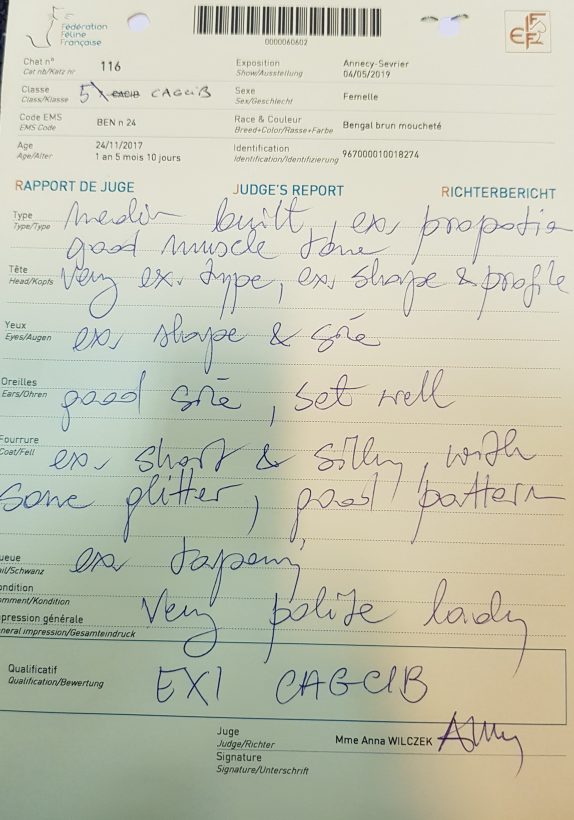 Fédération
Féline
Française
0000060602
FIFe
Chat n° 116 Exposition Annecy-Sevrier
Cat nb/Katz nr Show/Ausstellung 04/05/2019
Classe 5 CAGCIB Sexe Femelle
Class/Klasse Sex/Geschlecht
Code EMS BEN n 24 Race & Couleur Bengal brun moucheté
EMS Code Breed+Color/Rasse+Farbe
Age 24/11/2017 Identification 967000010018274
Age/Alter 1 an 5 mois 10 jours Identification/Identifizierung
RAPPORT DE JUGE JUDGE'S REPORT RICHTERBERICHT
Type medin built, ex, propotio
Type/Type good muscle tone
Tête Very ex. type, ex, shape & profile
Head/Kopfs
Yeux ex, shape & size
Eyes/Augen
Oreilles good size, set well
Ears/Ohren
Fourrure ex, short & silky, with
Coat/Fell
some glitter, good pattern
ueue ex tapering
ail/Schwanz
ondition
omment/Kondition
pression générale Very polite lady
neral impression/Gesamteindruck
Qualificatif EX1 CAGCIB
Qualification/Bewertung
Juge Mme Anna WILCZEK
Judge/Richter
Signature
Signature/Unterschrift